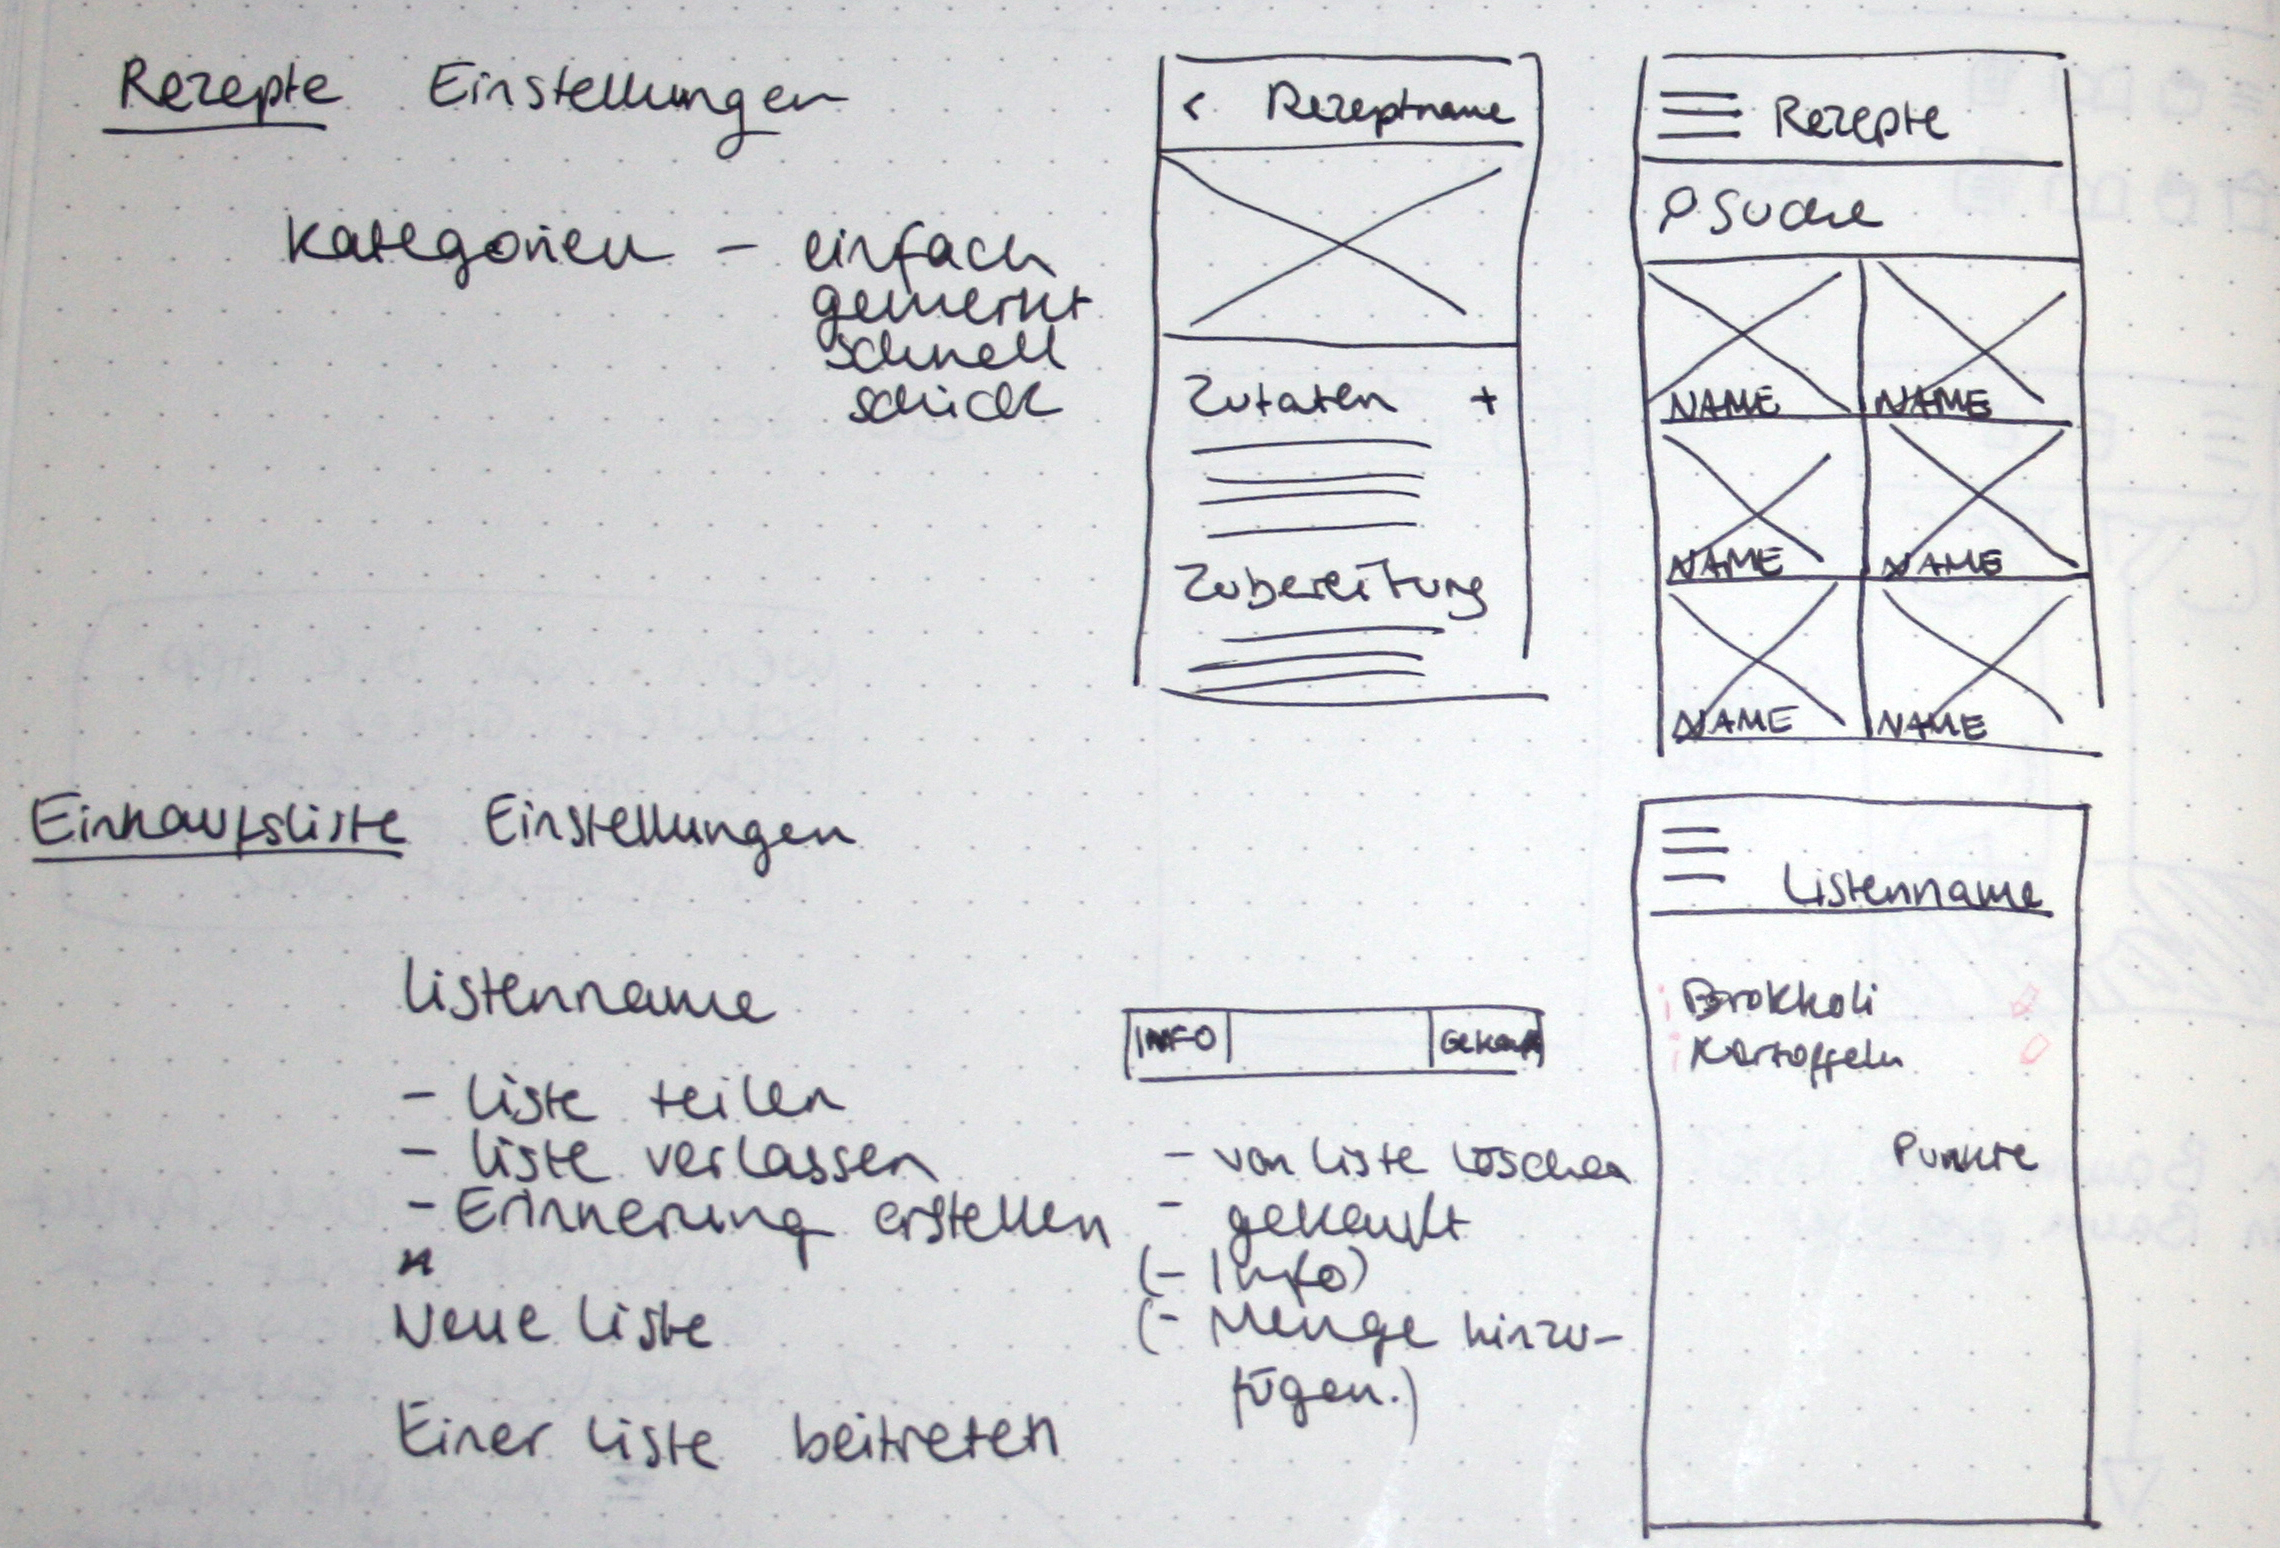 Rezepte Einstellungen
Kategorien - einfach
gemerkt
schnell
schick
< Rezeptname
Zutaten +
Zubereitung
Rezepte
Suche
NAME NAME
NAME NAME
NAME NAME
Einkaufsliste Einstellungen
Listenname
- Liste teilen
- Liste verlassen
- Erinnerung erstellen
Neue Liste
Einer Liste beitreten
INFO Gekauft
- von Liste löschen
- gekauft
(- Info)
(- Menge hinzu-
fügen.)
Listenname
Brokkoli
Kartoffeln
Punkte